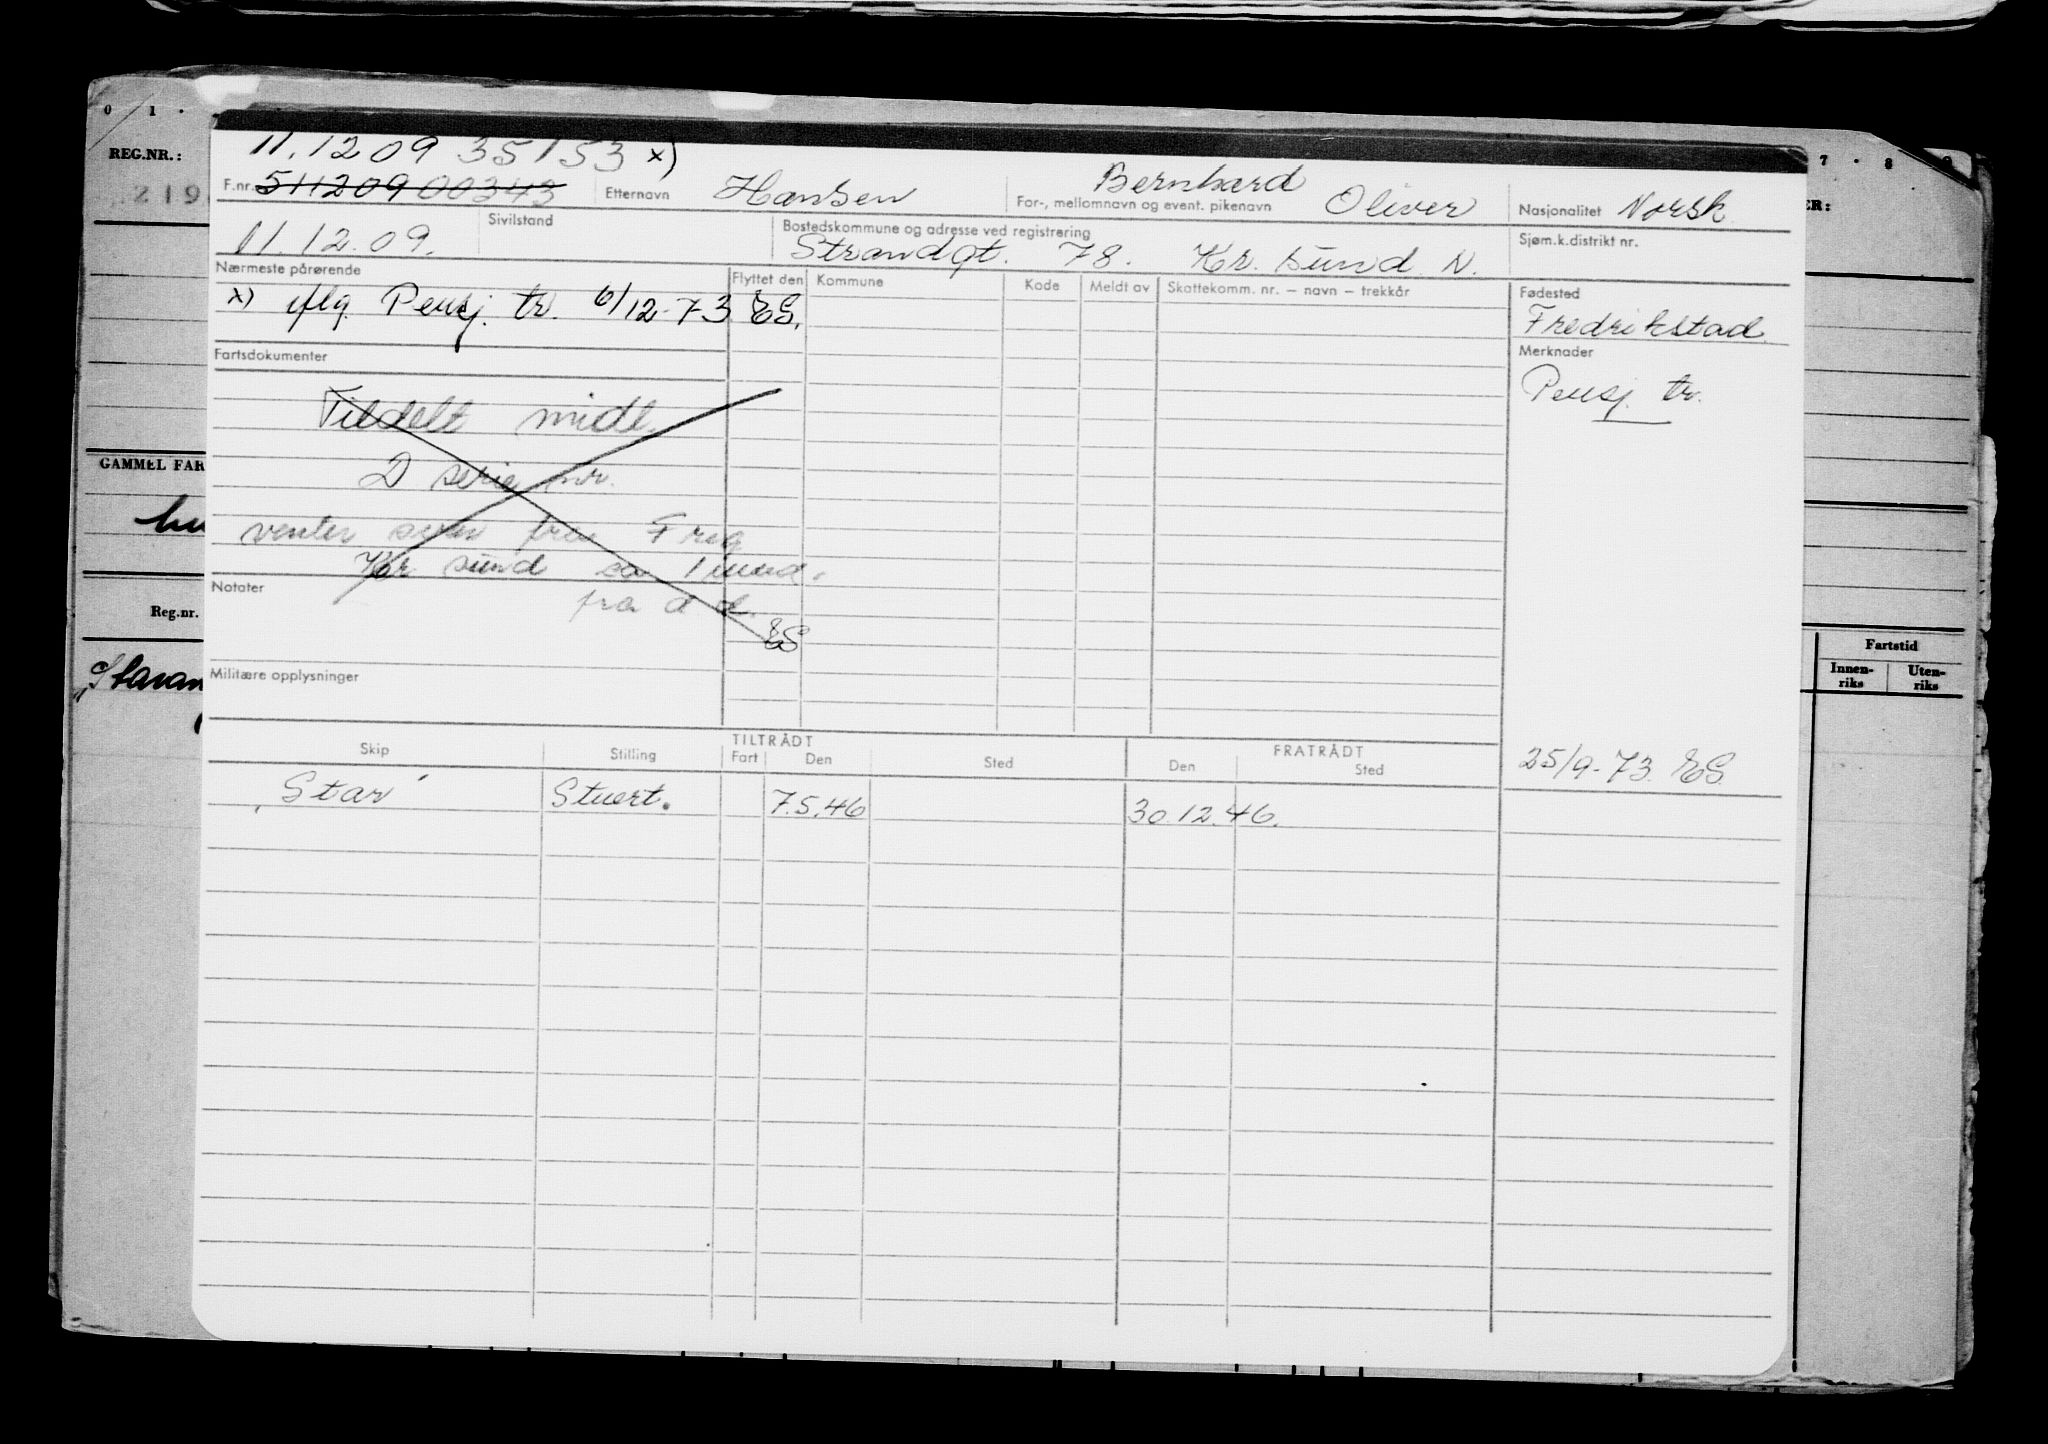 0 1 . 7 . 8 9
11.12 09 35153 x)
REG.NR.:
219
F.nr. 511209 00343 Etternavn Hansen Bernhard Oliver
For-, mellomnavn og event. pikenavn
Nasjonalitet Norsk
ER:
11.12.09. Sivilstand
Bostedskommune og adresse ved registrering
Strandgt. 78. Kr. sund N.
Sjøm.k.distrikt nr.
Nærmeste pårørende Flyttet den Kommune Kode Meldt av Skattekomm. nr. – navn – trekkår Fødested
x) iflg. Pensj. tr. 6/12-73 ES. Fredrikstad
Fartsdokumenter Merknader
Pensj. tr.
Tildelt midl.
D serie nr.
GAMMEL FAR
venter svar fra Freg
Kr sund ca 1 mnd.
Notater
fra d d.
ES
Reg.nr.
Fartstid
Innen-
riks
Uten-
riks
Militære opplysninger
TILTRÅDT FRATRÅDT
Skip Stilling Fart Den Sted Den Sted
25/9-73 ES
"Star" Stuert. 7.5.46 30.12.46.